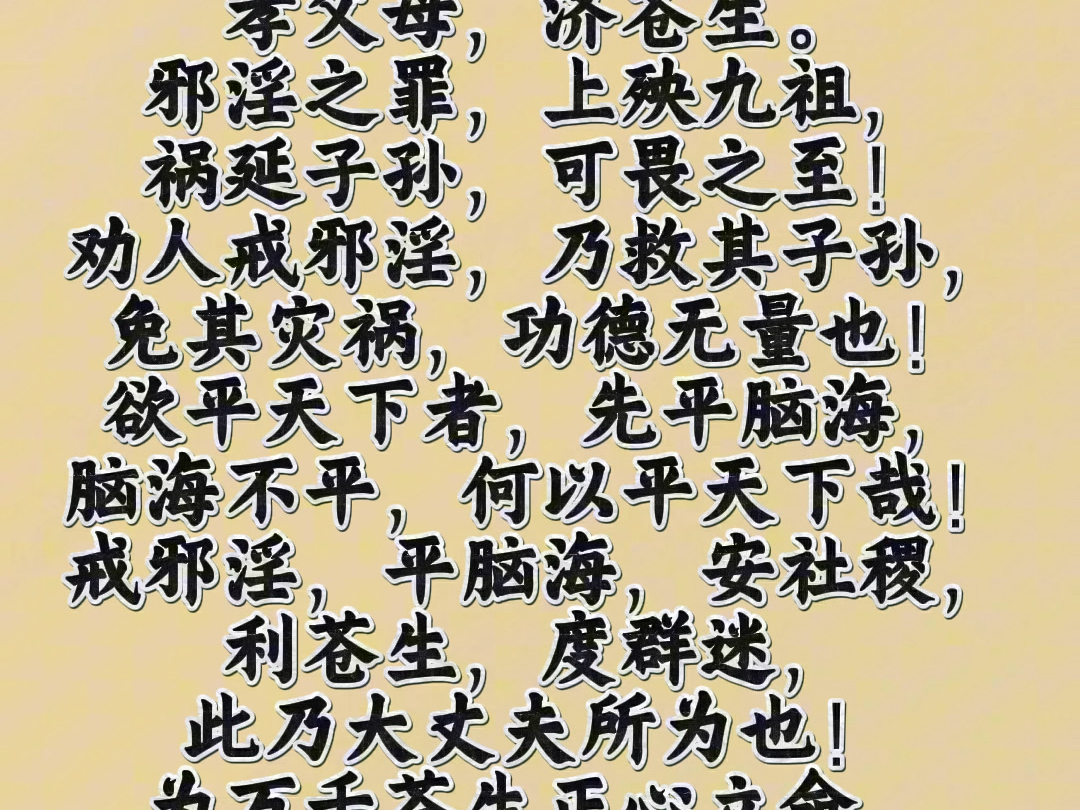 孝父母，济苍生。
邪淫之罪，上殃九祖，
祸延子孙，可畏之至！
劝人戒邪淫，乃救其子孙，
免其灾祸，功德无量也！
欲平天下者，先平脑海，
脑海不平，何以平天下哉！
戒邪淫，平脑海，安社稷，
利苍生，度群迷，
此乃大丈夫所为也！
为万千苍生正心立命